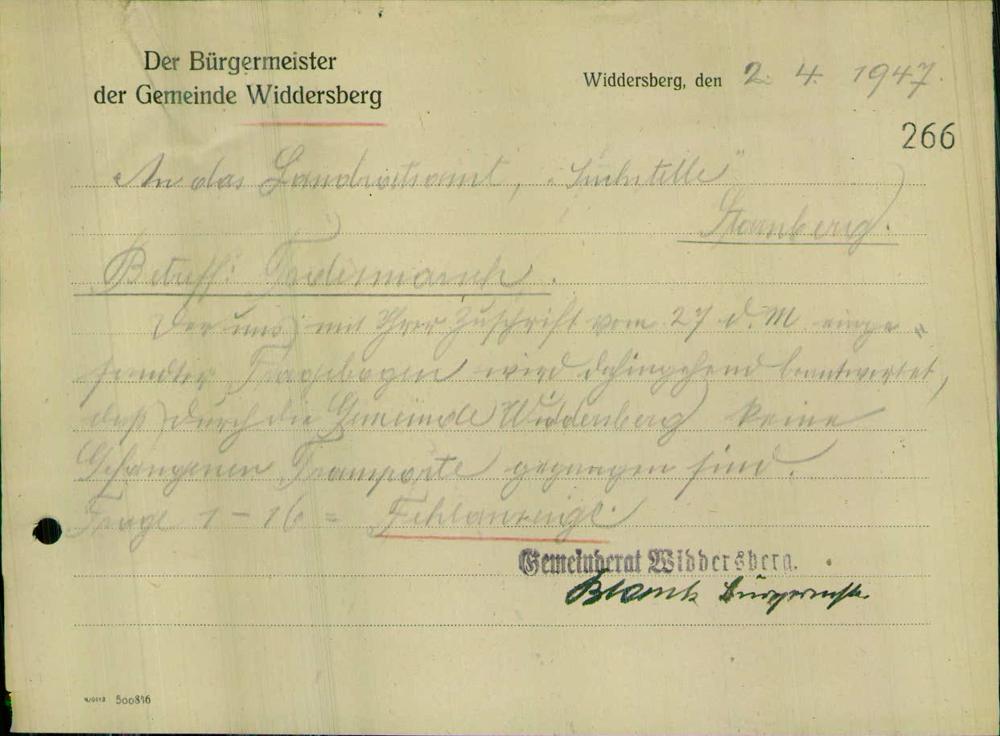 Der Bürgermeister
der Gemeinde Widdersberg
Widdersberg, den 2. 4. 1947.
266
An das Landratsamt, „Suchstelle"
Starnberg.
Betreff: Todesmarsch.
Der uns mit Ihrer Zuschrift vom 27 d. M. einge„
sandter Fragebogen wird dahingehend beantwortet,
daß durch die Gemeinde Widdersberg keine
Gefangenen Transporte gegangen sind.
Frage 1-16 = Fehlanzeige.
Gemeinderat Widdersberg.
Bürgermstr.
500846